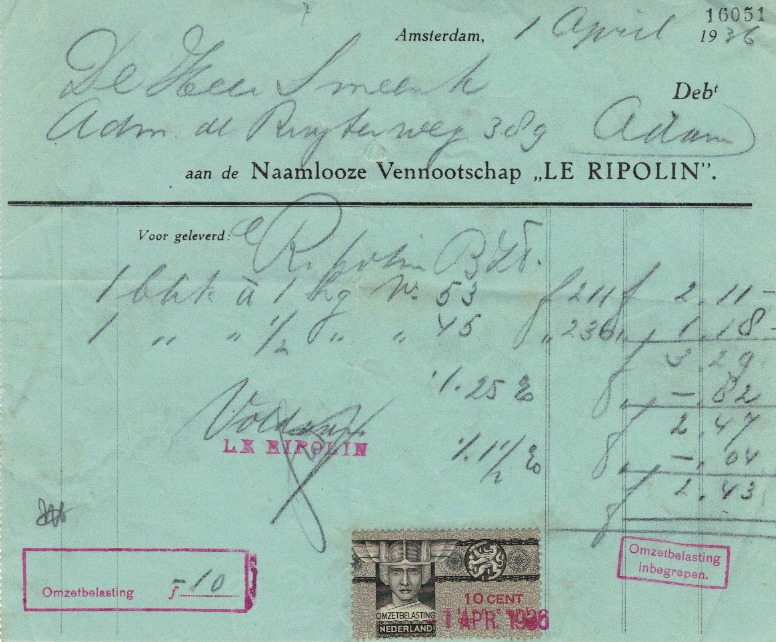 16051
Amsterdam, 1 April 1936
De Heer Smeenk
Debt
Adm. de Ruyterweg 389 Adam
aan de Naamlooze Vennootschap „LE RIPOLIN”.
Voor geleverd: Ripolin
1 blik à 1 kg No. 53 f 2 11 f 2.11 -
1 „ „ 1/2 „ „ 45 „ 2 36 „ 1.18 -
f 3.29
%. 25 % „ -.82
f 2 47
Voldaan
LE RIPOLIN
%. 1 1/2 % „ -.04
f 2.43
Omzetbelasting f -10
OMZETBELASTING
NEDERLAND
10 CENT
1 APR 1936
Omzetbelasting
inbegrepen.